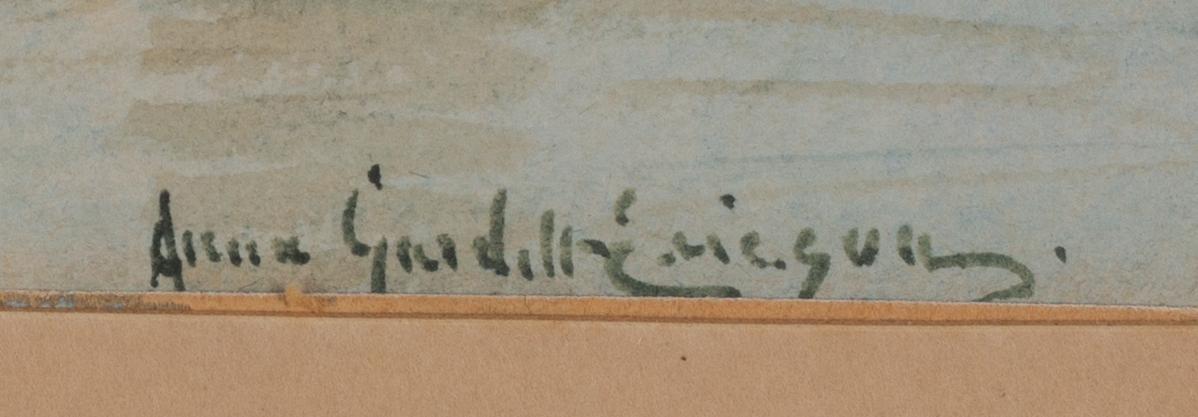 Anna Gardell-Ericson